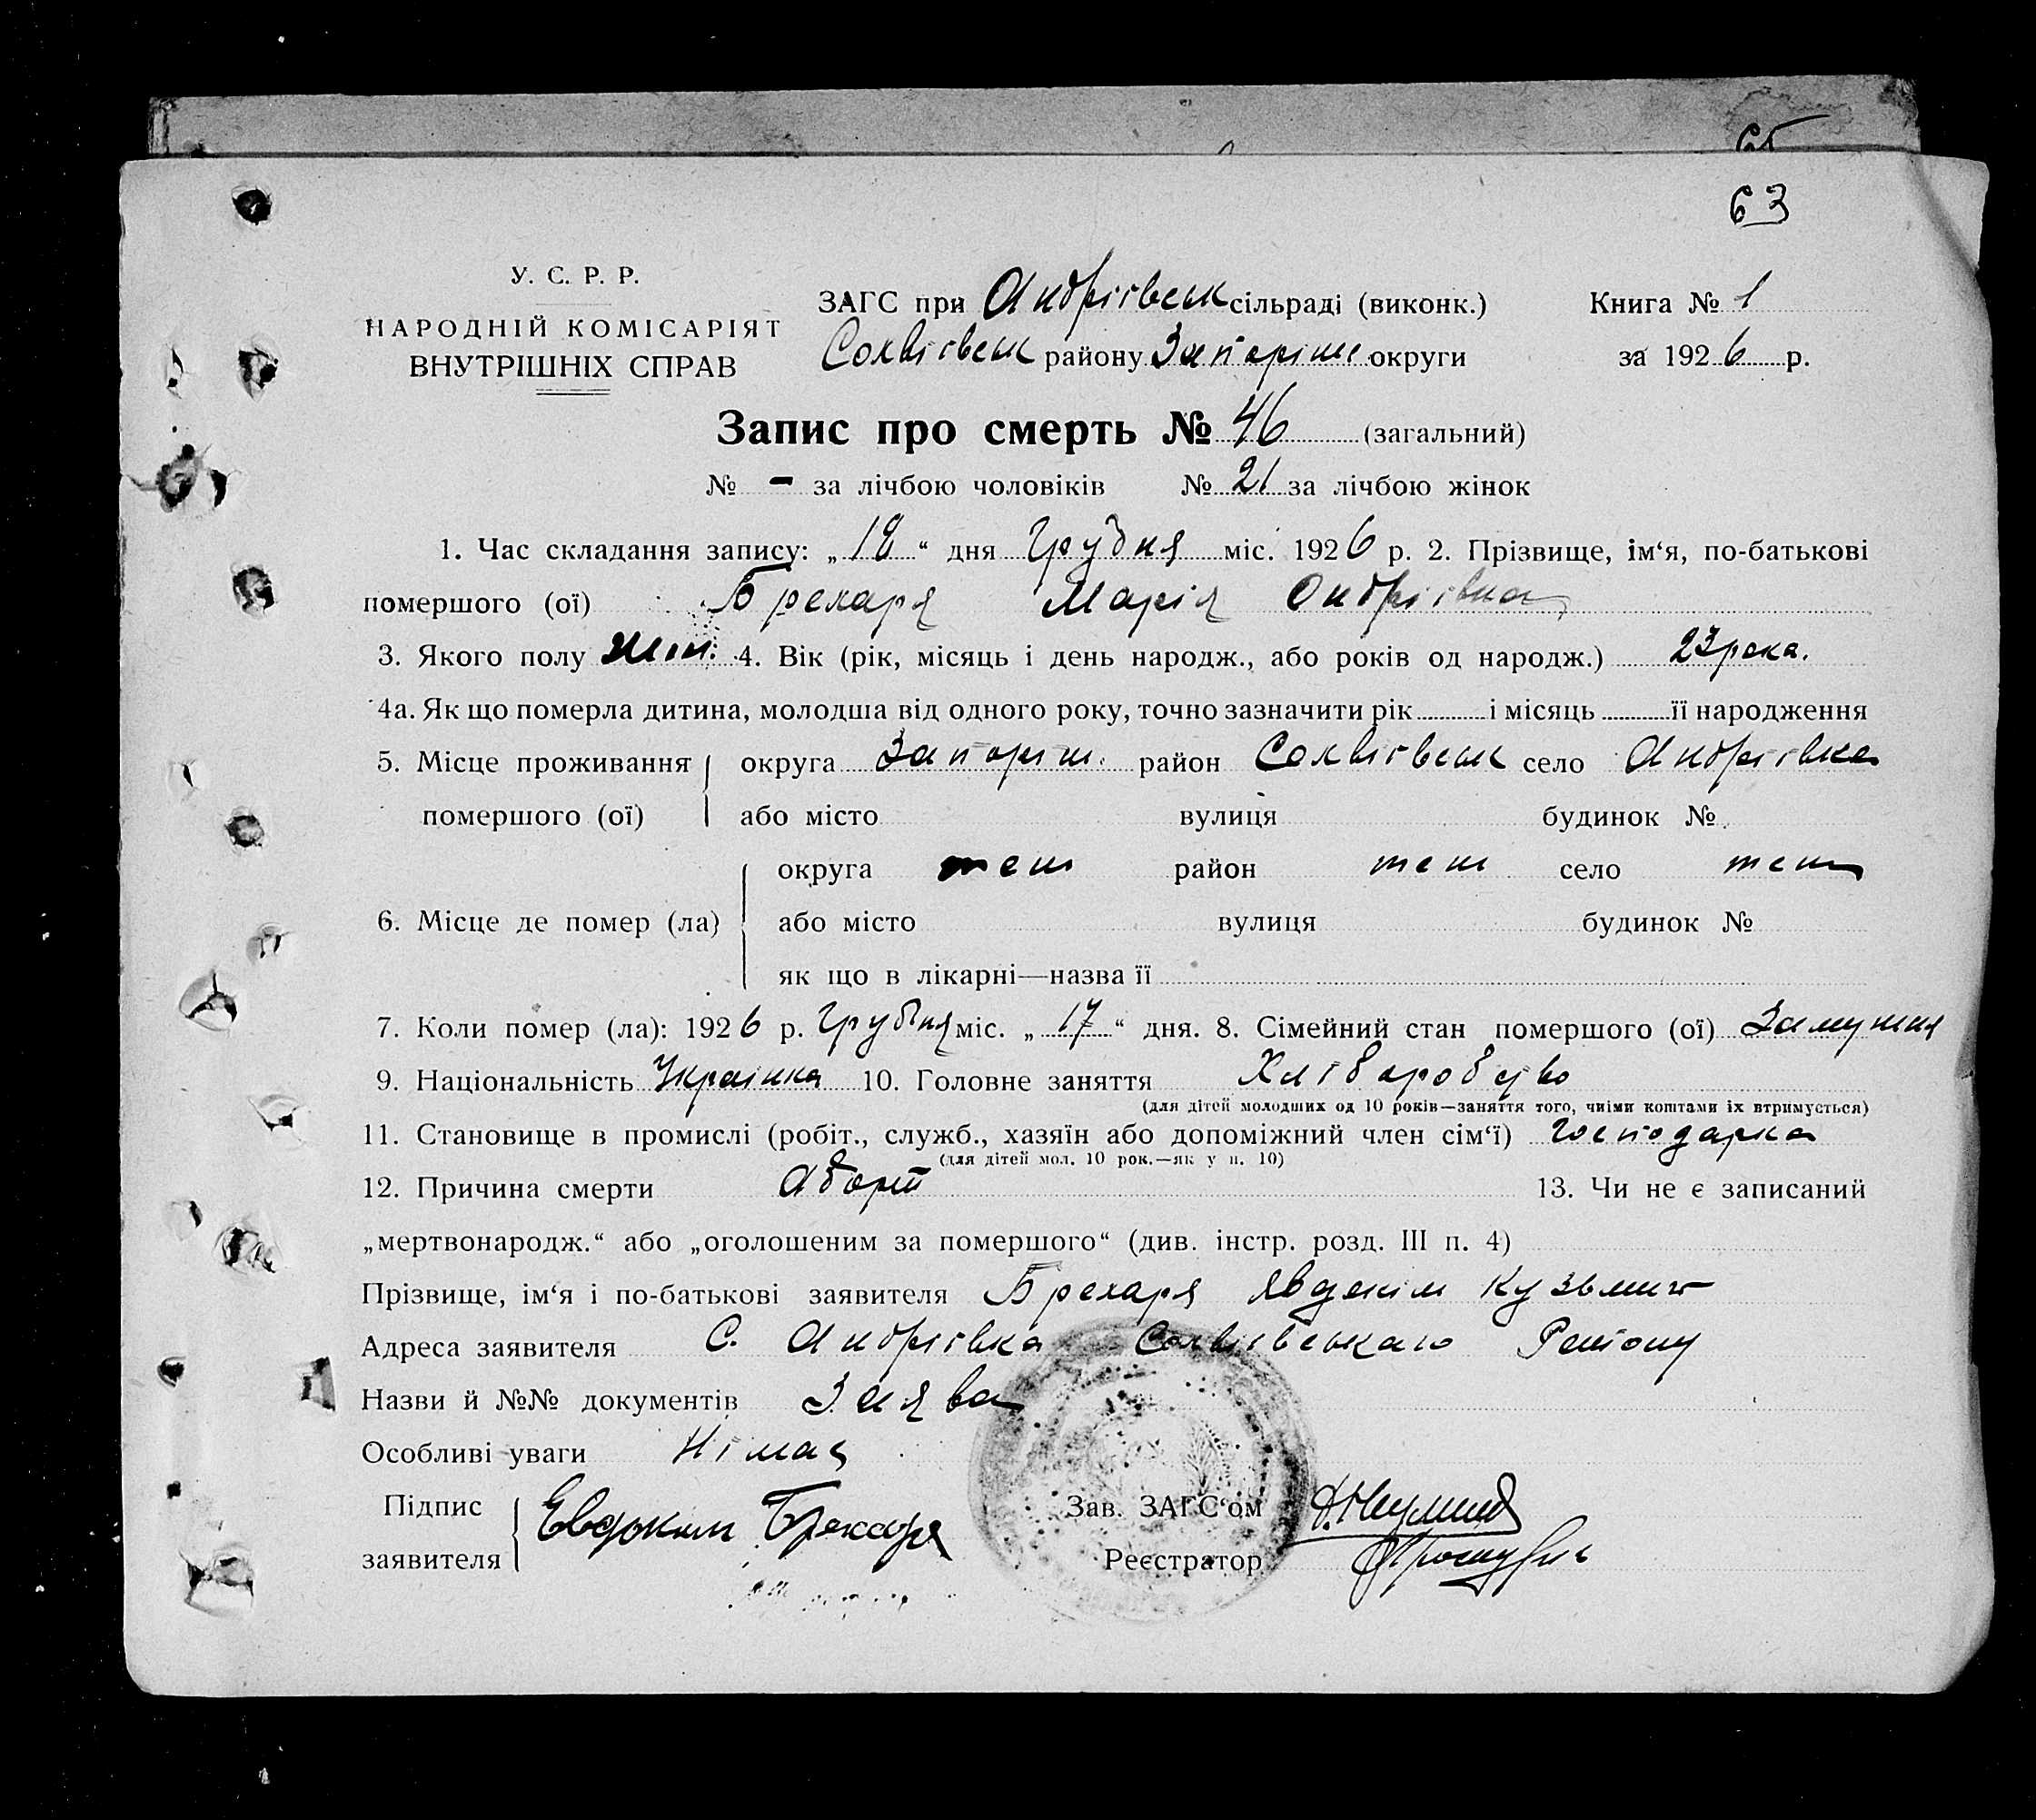 63
У. С. Р. Р.
НАРОДНІЙ КОМІСАРІЯТ
ВНУТРІШНІХ СПРАВ
ЗАГС при Андріївськ сільраді (виконк.)
Софіївськ району Запоріж. округи
Книга № 1
за 1926 р.
Запис про смерть № 46 (загальний)
№ - за лічбою чоловіків № 21 за лічбою жінок
1. Час складання запису: „18“ дня Грудня міс. 1926 р. 2. Прізвище, ім‘я, по-батькові
помершого (ої) Брехаря Марія Андріївна
3. Якого полу жін. 4. Вік (рік, місяць і день народж., або років од народж.) 23 рока.
4а. Як що померла дитина, молодша від одного року, точно зазначити рік і місяць її народження
5. Місце проживання помершого (ої) округа Запоріж. район Софіївськ село Андріївка
або місто вулиця будинок №
6. Місце де помер (ла) округа теж район теж село теж
або місто вулиця будинок №
як що в лікарні—назва її
7. Коли помер (ла): 1926 р. Грудня міс. „17“ дня. 8. Сімейний стан помершого (ої) Замужня
9. Національність Украінка 10. Головне заняття Хліборобство
(для дітей молодших од 10 років—заняття того, чиїми коштами їх втримується)
11. Становище в промислі (робіт., служб., хазяїн або допоміжний член сім‘ї) Господарка
(для дітей мол. 10 рок.—як у п. 10)
12. Причина смерти Аборт 13. Чи не є записаний
„мертвонародж.“ або „оголошеним за помершого“ (див. інстр. розд. III п. 4)
Прізвище, ім‘я і по-батькові заявителя Брехаря Явдоким Кузьмич
Адреса заявителя С. Андріївка Софіївського Району
Назви й №№ документів Заява
Особливі уваги Німає
Підпис заявителя Евдоким Брехаря
Зав. ЗАГС‘ом
Реєстратор